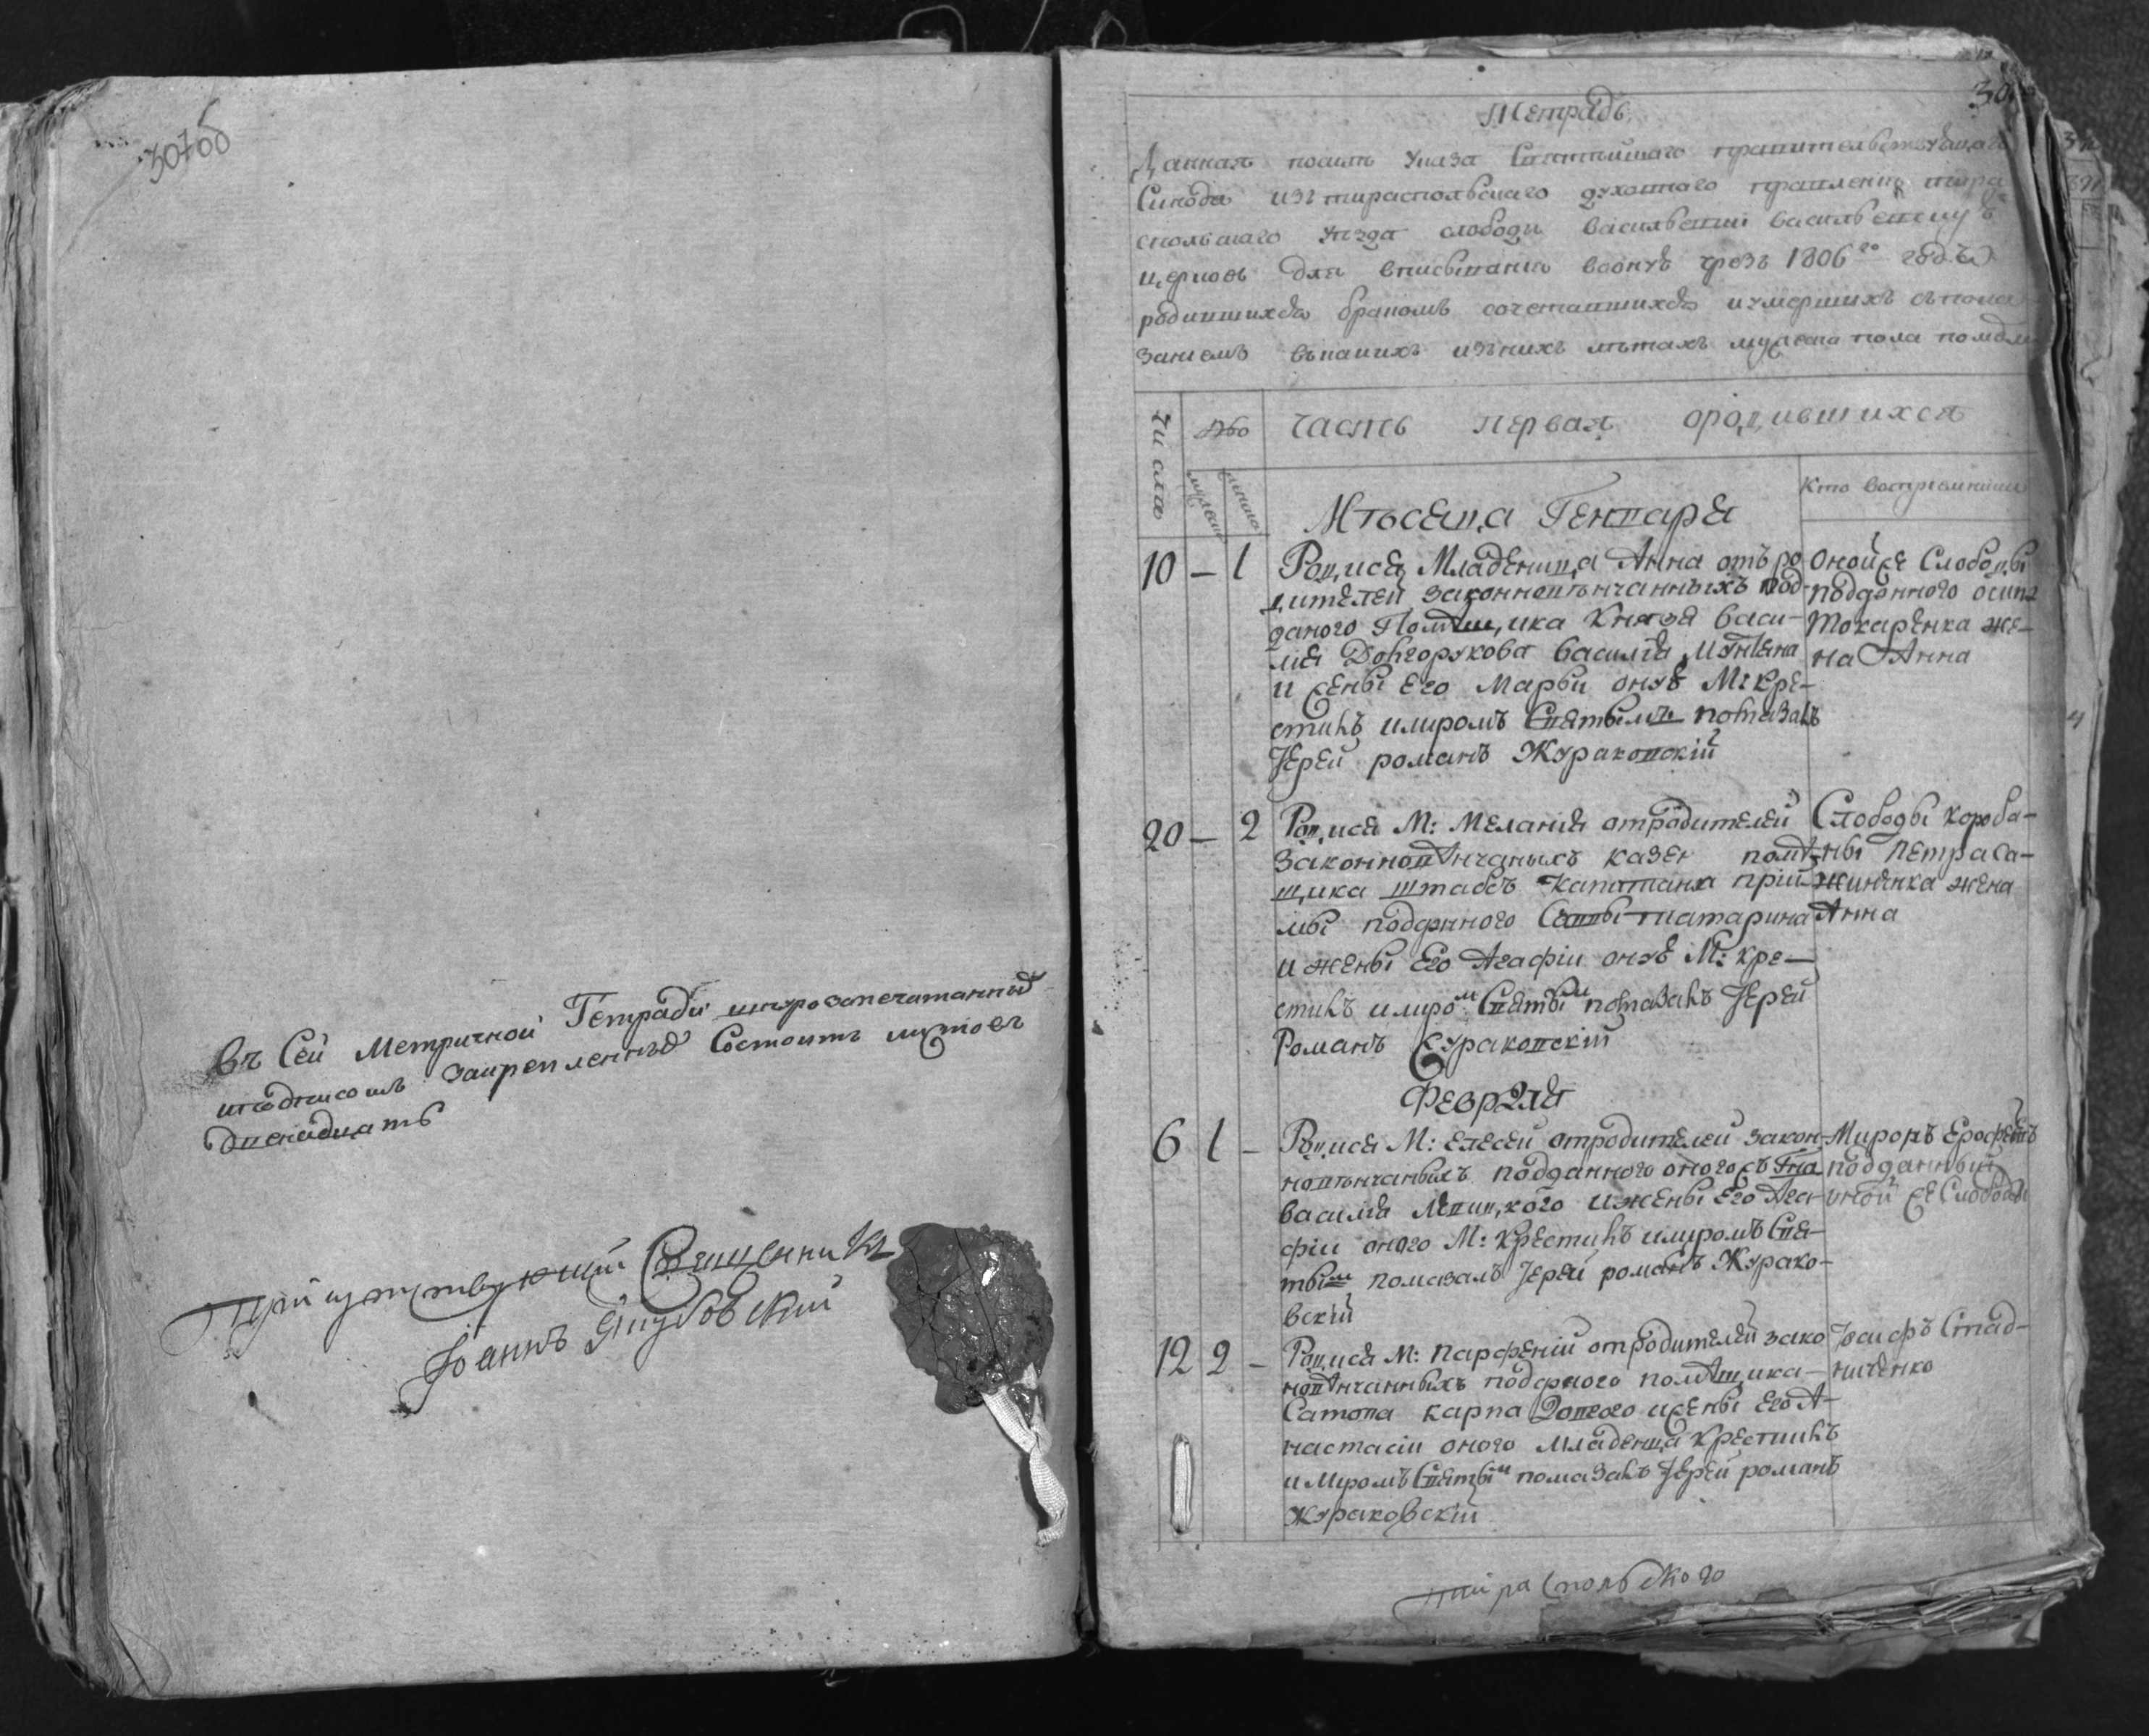 307об
Въ Сей Метричной Тетради шнурозапечатанной
иподписомъ закрепленной Состоитъ листовъ
двенадцать
Присутствующий Священникъ
Іоаннъ Якубовский
30
Тетрадь
Данная посилѣ Указа Святѣйшаго правительствующаго
Синода изъ тираспольскаго духовнаго правления тира
спольскаго уезда слободы васильевки васильевскую
церковь для вписывания воонуъ чрезъ 1806го годъ
родившихся бракомъ сочетавшихся иумершихъ съпока
заниемъ въкакихъ изънихъ лѣтахъ мужеска пола
Числа
часть первая ородившихся
мужеска
женска
Кто восприемники
Мѣсяца Генваря
10 – 1 Родися Младеница Анна отъ ро
дителей законновѣнчанныхъ под
даного Помѣщика Князя Васи–
лия Долгорукова василия
и жены Его Марьи онуъ М: кре–
стилъ имиромъ Святымъ помазалъ
Іерей романъ Жураковскій
Онойже Слободы
подданного осипа
Токаренка же–
на Анна
20 – 2 Родися М: Мелания отродителей
законновѣнчаныхъ казен помѣ
щика штабсъ капитана
подданного Саввы татарина
и жены Его Агафіи онуъ М: кре–
стилъ имиромъ Святым помазалъ Іерей
Романъ Жураковскій
Слободы короба–
Петра Са–
жиненка жена
Анна
Февраля
6 1 – Родися М: елесей отродителей закон
новѣнчаныхъ подданного оногожъ Гна
василия кого ижены Его Ага–
фіи оного М: крестилъ имиромъ Свя–
тымъ помазалъ Іерей романъ Жирако–
вскій
Миронъ Ерофѣевъ
подданный
оной же Слободы
12 2 – Родися М: Парфеній отродителей зако
новѣнчанныхъ подданого помѣщика–
Сатова карпа Долгого ижены Его А–
настасіи оного младенца крестилъ
иМиромъ Святым помазалъ Іерей романъ
жураковскій
Іосифъ Стад–
ниченко
тирасполского